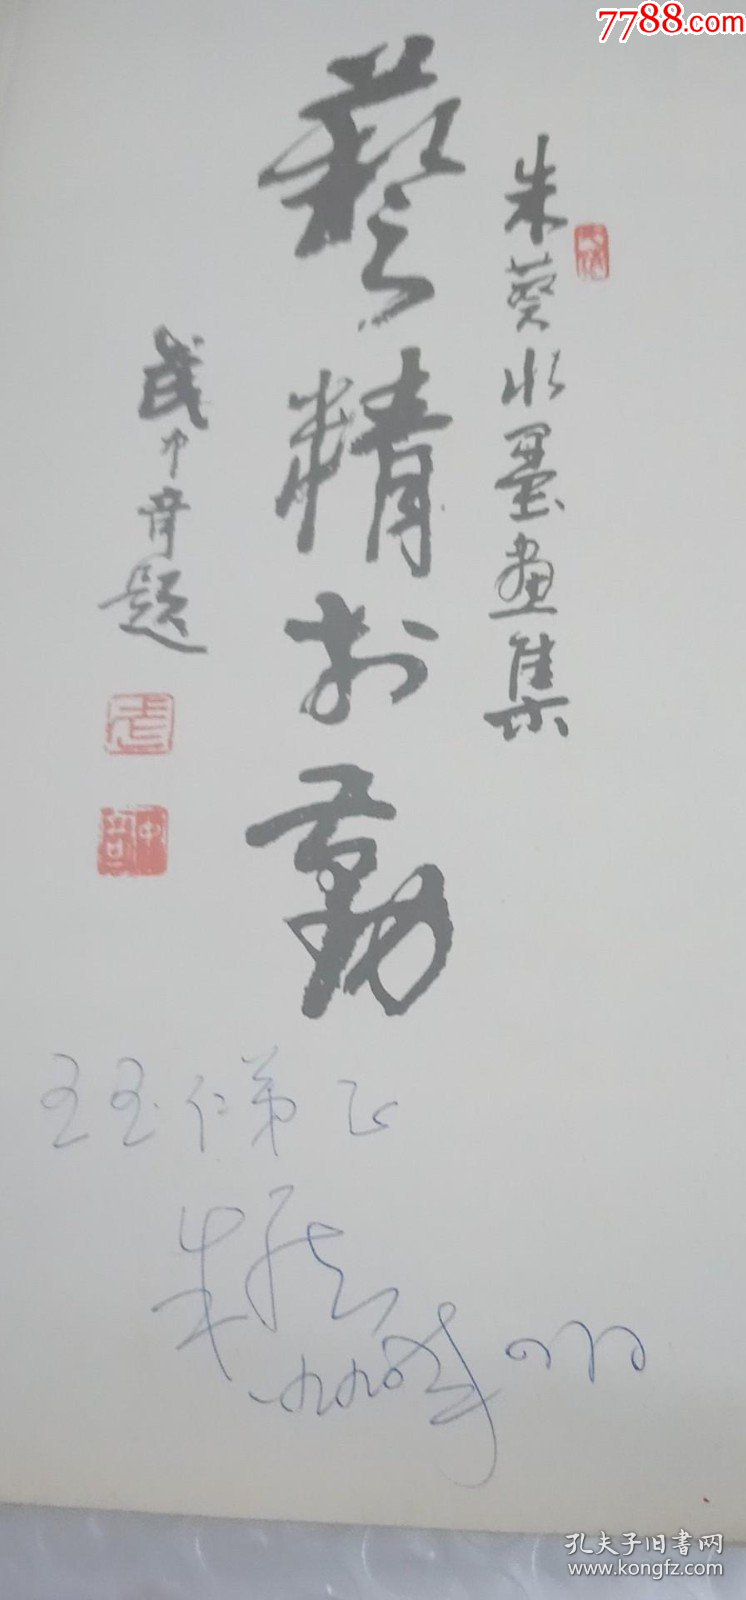 7788.com
朱葵水墨画集
藝精于勤
武中奇題
王玉仁弟正
朱葵
一九九〇年四月
孔夫子旧書网
www.kongfz.com